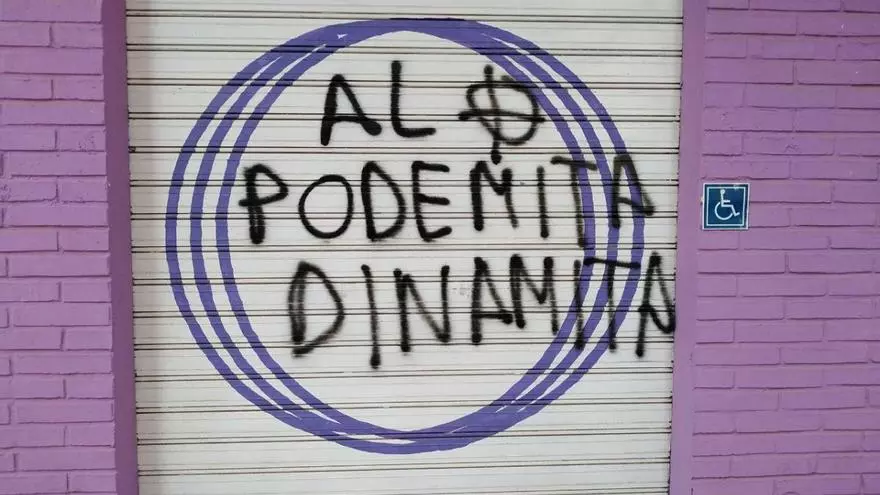 AL
PODEMITA
DINAMITA